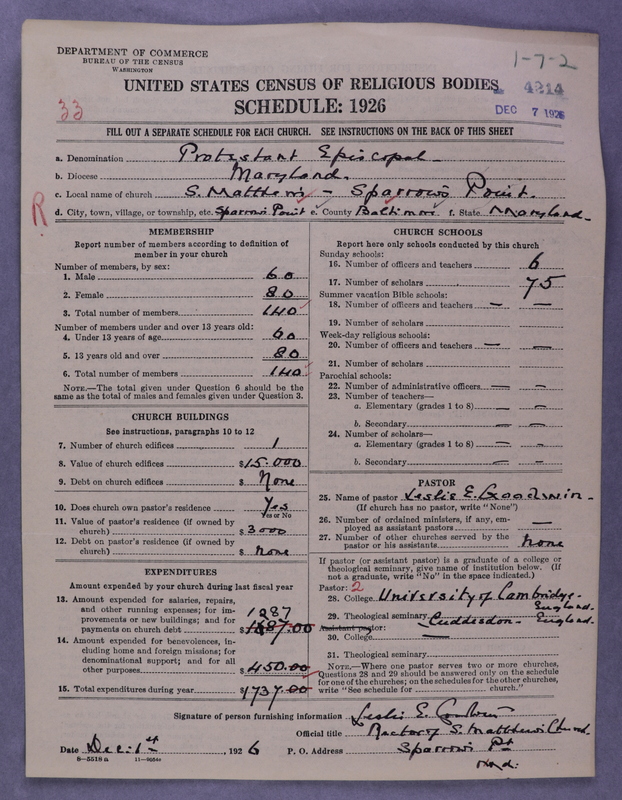 DEPARTMENT OF COMMERCE
BUREAU OF THE CENSUS
WASHINGTON
1-7-2
UNITED STATES CENSUS OF RELIGIOUS BODIES
4214
SCHEDULE: 1926
DEC 7 1926
33
FILL OUT A SEPARATE SCHEDULE FOR EACH CHURCH. SEE INSTRUCTIONS ON THE BACK OF THIS SHEET
a. Denomination Protestant Episcopal
b. Diocese Maryland.
c. Local name of church S. Matthews - Sparrows Point.
R
d. City, town, village, or township, etc. Sparrows Point e. County Baltimore f. State Maryland
MEMBERSHIP
Report number of members according to definition of
member in your church
Number of members, by sex:
1. Male 60
2. Female 80
3. Total number of members 140
Number of members under and over 13 years old:
4. Under 13 years of age 60
5. 13 years old and over 80
6. Total number of members 140
NOTE.—The total given under Question 6 should be the
same as the total of males and females given under Question 3.
CHURCH BUILDINGS
See instructions, paragraphs 10 to 12
7. Number of church edifices 1
8. Value of church edifices $15.000
9. Debt on church edifices $ None
10. Does church own pastor's residence Yes
Yes or No
11. Value of pastor's residence (if owned by
church) $3000
12. Debt on pastor's residence (if owned by
church) $ None
EXPENDITURES
Amount expended by your church during last fiscal year
13. Amount expended for salaries, repairs,
and other running expenses; for im-
provements or new buildings; and for 1287
payments on church debt $1287.00
14. Amount expended for benevolences, in-
cluding home and foreign missions; for
denominational support; and for all
other purposes $450.00
15. Total expenditures during year $1737.00
CHURCH SCHOOLS
Report here only schools conducted by this church
Sunday schools:
16. Number of officers and teachers 6
17. Number of scholars 75
Summer vacation Bible schools:
18. Number of officers and teachers — —
19. Number of scholars
Week-day religious schools:
20. Number of officers and teachers — —
21. Number of scholars
Parochial schools:
22. Number of administrative officers — —
23. Number of teachers—
a. Elementary (grades 1 to 8) — —
b. Secondary — —
24. Number of scholars—
a. Elementary (grades 1 to 8) — —
b. Secondary — —
PASTOR
25. Name of pastor Leslie E. Goodwin
(If church has no pastor, write "None")
26. Number of ordained ministers, if any, em-
ployed as assistant pastors —
27. Number of other churches served by the
pastor or his assistants None
If pastor (or assistant pastor) is a graduate of a college or
theological seminary, give name of institution below. (If
not a graduate, write "No" in the space indicated.)
Pastor: 2
28. College University of Cambridge - England.
29. Theological seminary Cuddesdon - England.
Assistant pastor:
30. College —
31. Theological seminary
NOTE.—Where one pastor serves two or more churches,
Questions 28 and 29 should be answered only on the schedule
for one of the churches; on the schedules for the other churches,
write "See schedule for church."
Signature of person furnishing information Leslie E. Goodwin
Official title Rector of S. Matthews Church.
Date Dec. 1st, 1926 P. O. Address Sparrows Pt
Md.
8—5518 a